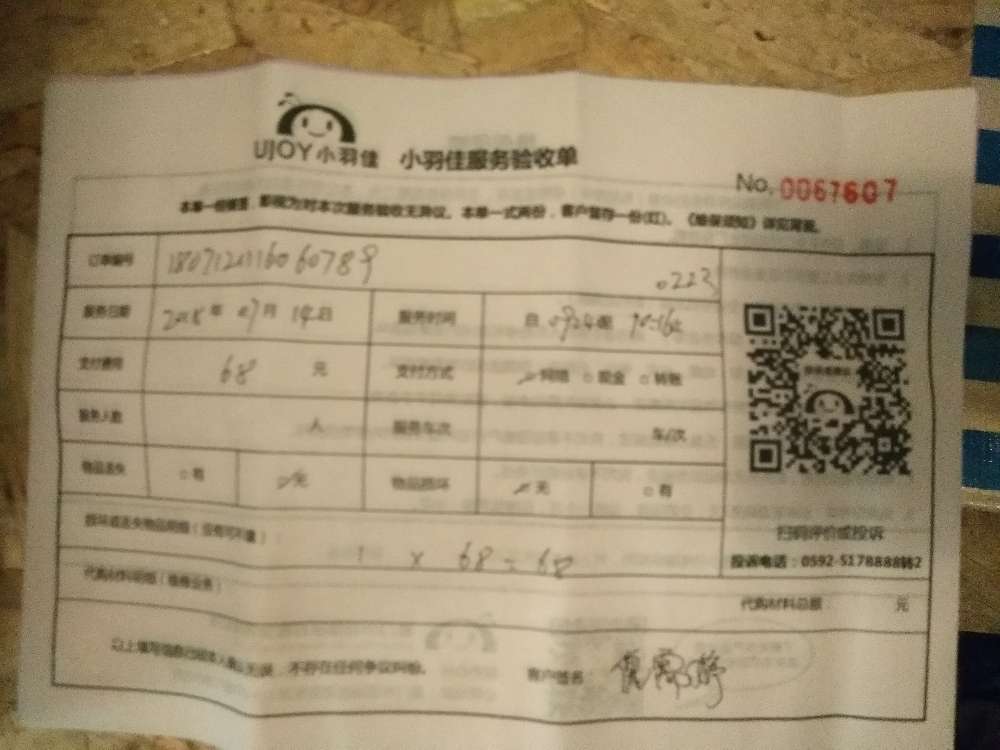 UJOY小羽佳 小羽佳服务验收单
No. 0067607
本单一经签署，即视为对本次服务验收无异议。本单一式两份，客户留存一份(红)。《维保须知》详见背面。
订单编号 0223
服务日期 2018年07月14日 服务时间 自
支付费用 68 元 支付方式 网络 现金 转账
服务人数 人 服务车次 车/次
物品丢失 有 无 物品损坏 无 有
损坏或丢失物品明细（没有可不填）
1 x 68 = 68
扫码评价或投诉
投诉电话：0592-5178888转2
代购材料明细（维修业务）
代购材料总额 元
以上填写信息已经本人确认无误，不存在任何争议纠纷。 客户签名